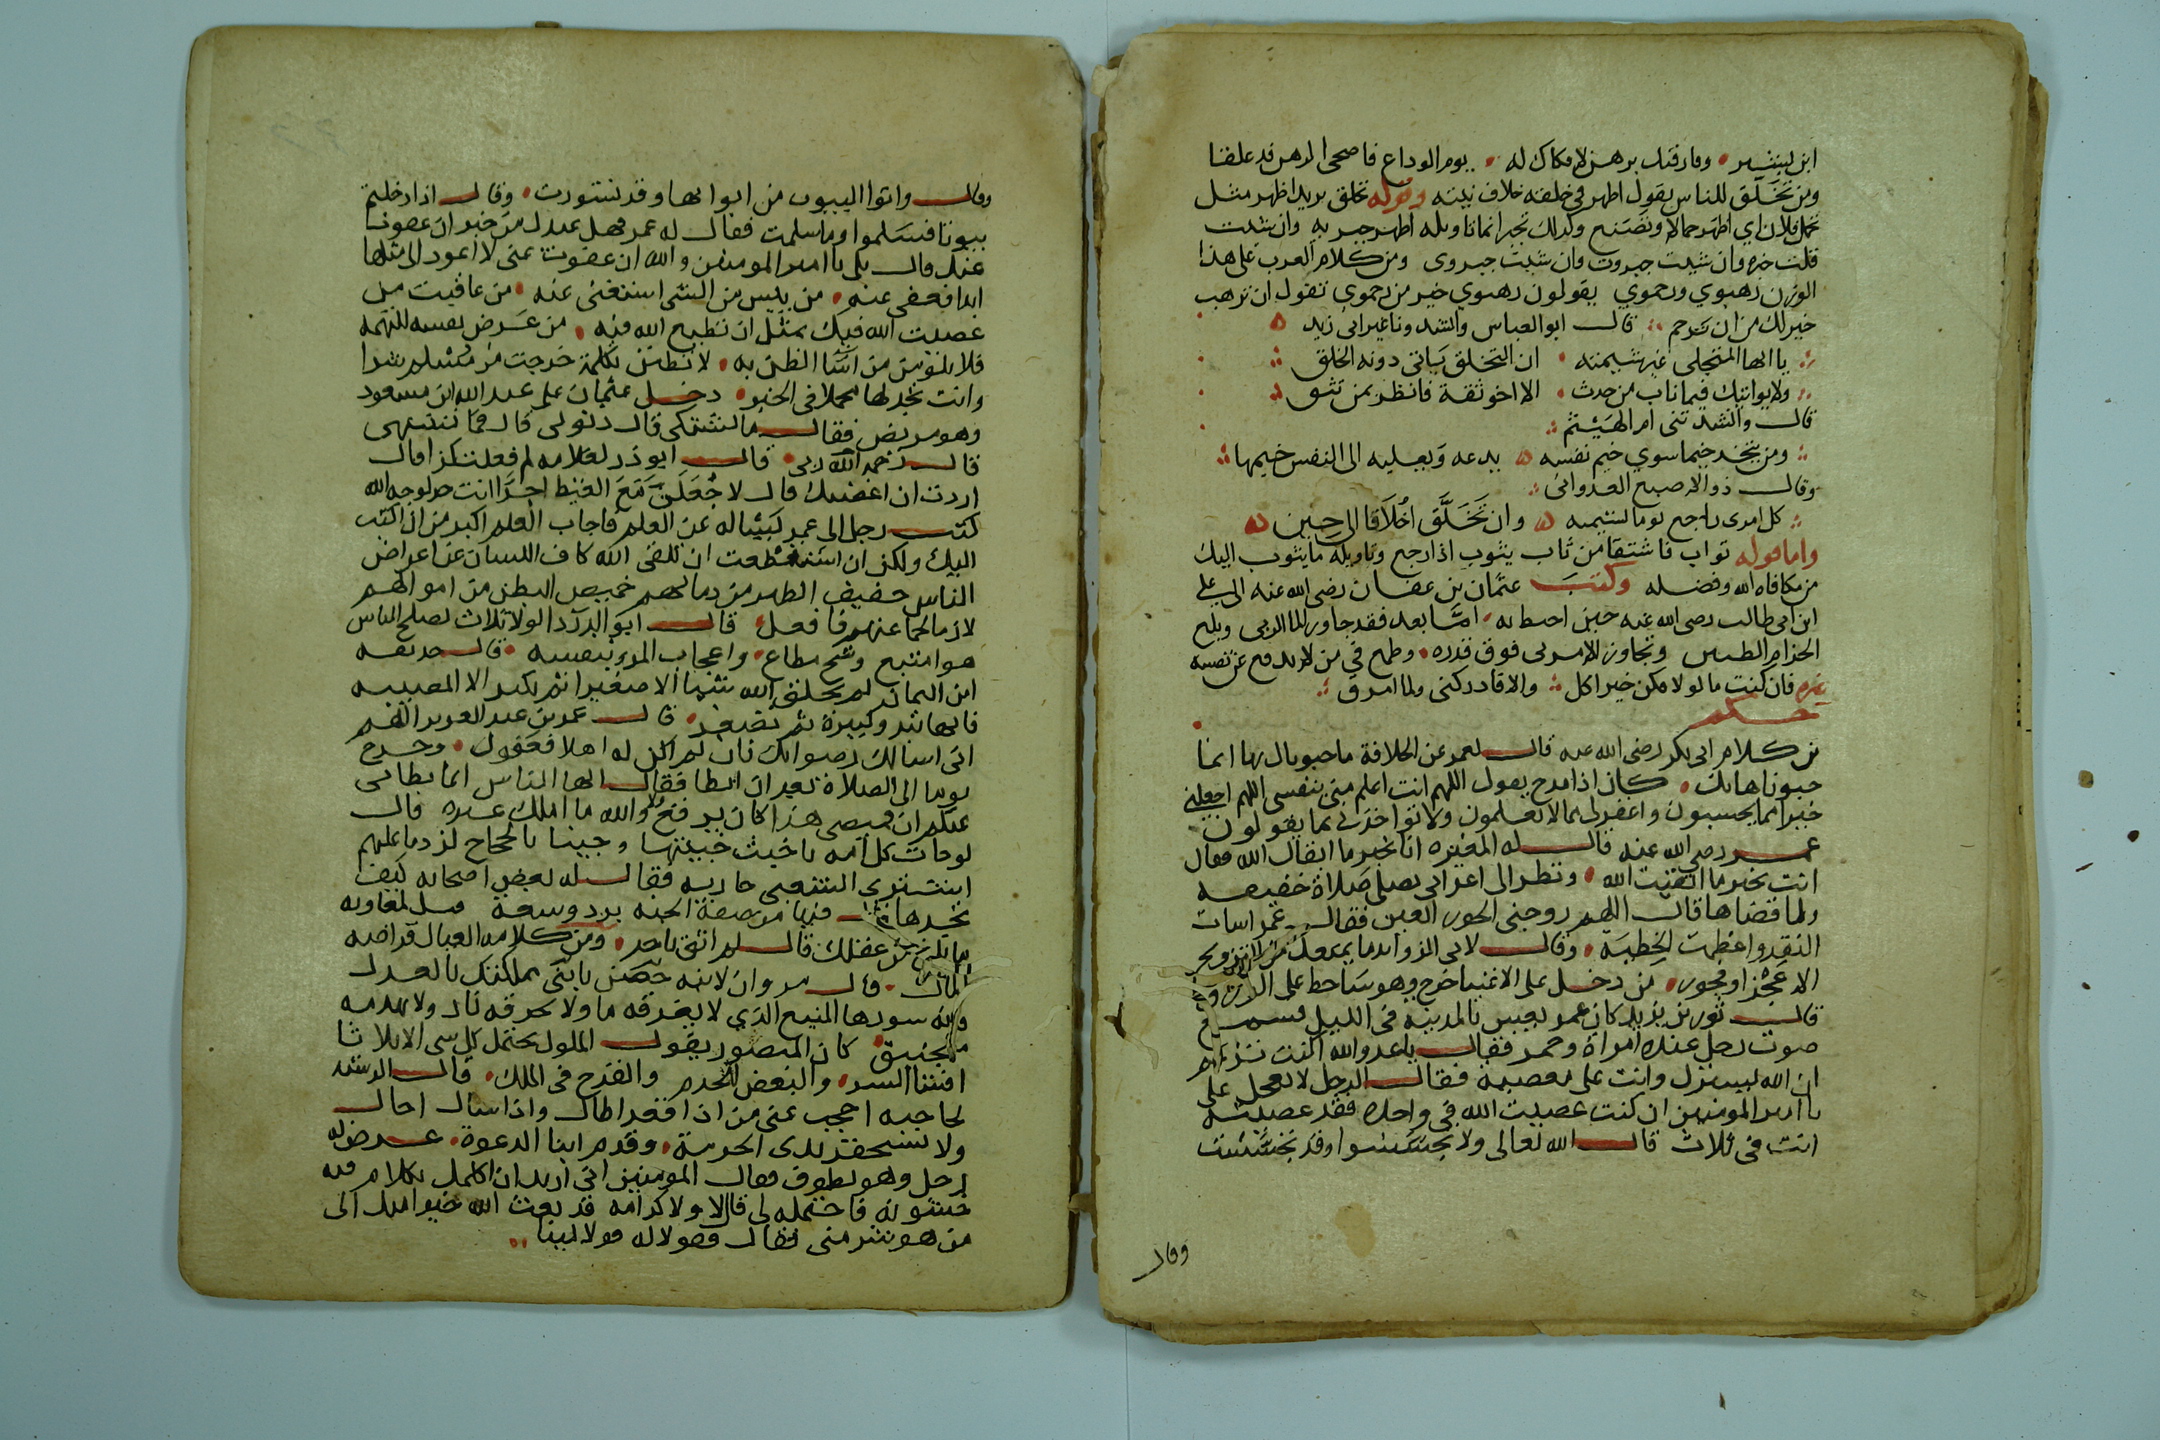 ابن لبيشير وفارقتك برهن لا فكاك له يوم الوداع فاضحى الرهن قد علقا
ومن تخلق للناس يقول اظهر في خلقه خلاف نيته وقوله تخلق يريد اظهر مثل
تجمل فلان اي اظهر جمالا وتصنع وكذلك تجبر انما تاويله اظهر جبريه وان شئت
قلت جبره وان شئت جبروت وان شئت جبروى ومن كلام العرب على هذا
الوزن رهبوي ورحموي يقولون رهبوي خير من رحموي تقول ان ترهب
خير لك من ان ترحم قال ابو العباس وانشدونا غير ابى زيد
يا ايها المتحلى غير شيمته ان التخلق ياتى دونه الخلق
ولا يواتيك فيما ناب من حدث الا اخو ثقة فانظر بمن تثق
قال وانشدتنى ام الهيثم
ومن يتخذ خيما سوى خيم نفسه يدعه ويغلبه الى النفس خيمها
وقال ذو الاصبع العدوانى
كل امرى راجع يوما لشيمته وان تخلق اخلاقا الى حين
واما قوله ثواب فاشتقاقه من ثاب يثوب اذا رجع وتاويله ما يثوب اليك
من مكافاه الله وفضله وكتب عثمان بن عفان رضى الله عنه الى على
ابن ابى طالب رضى الله عنه حين احيط به اما بعد فقد جاوز الماء الزبى وبلغ
الحزام الطبيين وتجاوز الامر بى فوق قدره وطمع في من لا يدفع عن نفسه
فان كنت ماكولا فكن خير اكل والا فادركنى ولما امزق
حكم
من كلام ابى بكر رضى الله عنه قال لعمر عن الخلافة ما حبوناك بها انما
حبوناها بك كان اذا مدح يقول اللهم انت اعلم منى بنفسى اللهم اجعلنى
خيرا مما يحسبون واغفر لى ما لا يعلمون ولا تواخذنى بما يقولون
عمر رضى الله عنه قال له المغيره انا بخير ما ابقاك الله فقال
انت بخير ما اتقيت الله ونظر الى اعرابى يصلى صلاة خفيفه
ولما قضاها قال اللهم زوجنى الحور العين فقال عمر اسات
النقد واعظمت الخطبة وقال لابى الزوائد ما يمنعك من التزويج
الا عجز او فجور من دخل على الاغنيا خرج وهو ساخط على الرزق
قال ثور بن يزيد كان عمر يعس بالمدينه فى الليل فسمع
صوت رجل عنده امراة وخمر فقال يا عدو الله اكنت ترى
ان الله يستزل وانت على معصيه فقال الرجل لا تعجل على
يا امير المومنين ان كنت عصيت الله فى واحده فقد عصيته
انت فى ثلاث قال الله تعالى ولا تجسسوا وقد تجسست
وقال
وقال واتوا البيوت من ابوابها وقد تسورت وقال اذا دخلتم
بيوتا فسلموا وما سلمت فقال له عمر فهل عندك من خير ان عفونا
عنك قال بلى يا امير المومنين والله ان عفوت عنى لا اعود الى مثلها
ابدا فعفى عنه من يئس من الشى استغنى عنه من عاقبت من
عصيت الله فيك بمثل ان تطيع الله فيه من عرض نفسه للتهمه
فلا يلومن من اسا الظن به لا تظنن بكلمة خرجت من مسلم شرا
وانت تجد لها محملا فى الخير دخل عثمان على عبد الله ابن مسعود
وهو مريض فقال ما تشتكى قال ذنوبى قال فما تشتهى
قال رحمة ربى قال ابو ذر لغلامه لم فعلت كذا قال
اردت ان اغضبك قال لاجعلن مع الغيظ اجرا انت حر لوجه الله
كتب رجل الى عمر يساله عن العلم فاجاب العلم اكبر من ان اكتب
اليك ولكن ان استطعت ان تلقى الله كاف اللسان عن اعراض
الناس خفيف الظهر من دمائهم خميص البطن من اموالهم
لازما لجماعتهم فافعل قال ابو الدردا لولا ثلاث لصلح الناس
هوا متبع وشح مطاع واعجاب المرء بنفسه قال حذيفه
ابن اليمان لم يخلق الله شيئا الا صغيرا ثم يكبر الا المصيبه
فانها تبدو كبيرة ثم تصغر قال عمر بن عبد العزيز اللهم
انى اسالك رضوانك فان لم اكن له اهلا فعفوك وخرج
يوما الى الصلاة بعد ان ابطا فقال ايها الناس انما بطانى
عنكم ان قميصى هذا كان يرفع والله ما املك غيره قال
لو جات كل امه باخبث خبيثها وجينا بالحجاج لزدنا عليهم
اشترى الشعبى جاريه فقال له بعض اصحابه كيف
تجدها قال فيها من صفة الجنه برد وسعه قيل لمعاويه
ما بلغ من عقلك قال لم اثق باحد ومن كلامه العيال قراضه
المال قال مروان لابنه حصن يا بنى مملكتك بالعدل
فانه سورها المنيع الذى لا يغرقه ما ولا يحرقه نار ولا يهدمه
منجنيق كان المنصور يقول الملوك يحتمل كل شى الا ثلاثا
افشا السر والتعرض للحرم والقدح فى الملك قال الرشيد
لحاجبه احجب عنى من اذا قعد اطال واذا سال احال
ولا تستخفن بذى الحرمة وقدم ابنا الدعوة عرض له
رجل وهو يطوف فقال المومنين انى اريد ان اكلمك بكلام فيه
خشونه فاحتمله لى قال لا ولا كرامه قد بعث الله خيرا منك الى
من هو شر منى فقال فقولا له قولا لينا